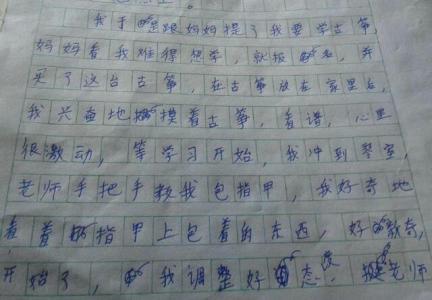 我于是跟妈妈提了我要学古筝,
妈妈看我难得想学,就报名,并
买了这台古筝,在古筝放在家里后,
我兴奋地抚摸着古筝,看谱,心里
很激动,等学习开始,我冲到琴室,
老师手把手教我包指甲,我好奇地
看着指甲上包着的东西,好新奇,
开始了,我调整好态度,老师